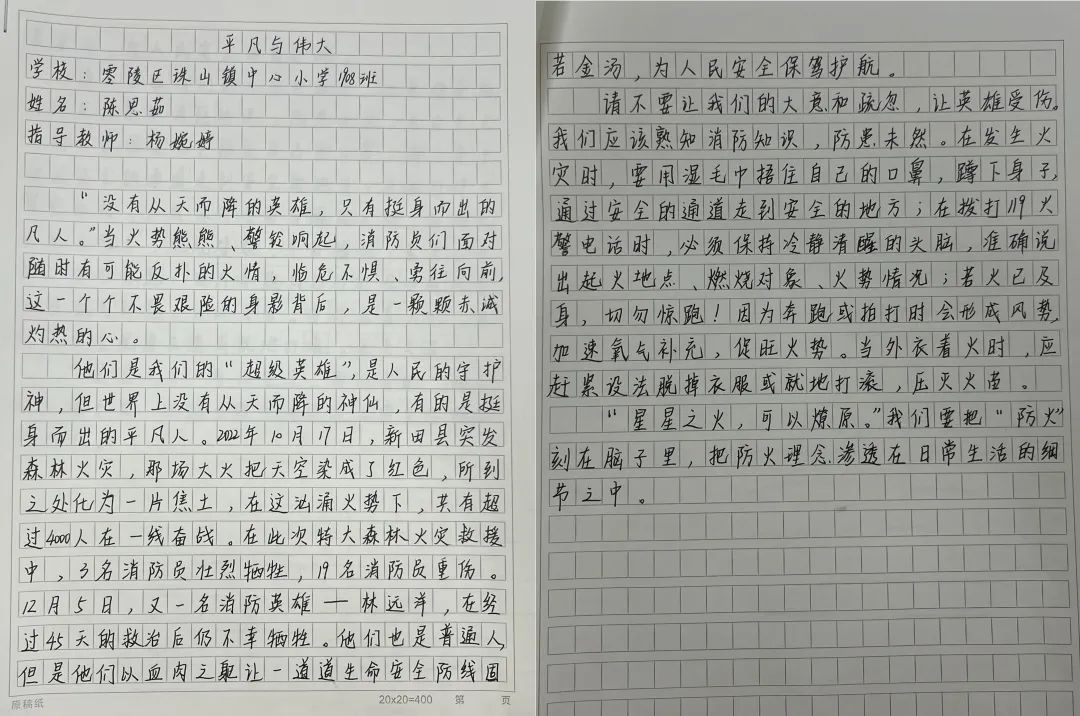 平凡与伟大
学校：零陵区珠山镇中心小学1908班
姓名：陈思茹
指导教师：杨婉婷
“没有从天而降的英雄，只有挺身而出的
凡人。”当火势熊熊、警铃响起，消防员们面对
随时有可能反扑的火情，临危不惧、勇往向前，
这一个个不畏艰险的身影背后，是一颗颗赤诚
灼热的心。
他们是我们的“超级英雄”，是人民的守护
神，但世界上没有从天而降的神仙，有的是挺
身而出的平凡人。2022年10月17日，新田县突发
森林火灾，那场大火把天空染成了红色，所到
之处化为一片焦土，在这汹涌火势下，共有超
过4000人在一线奋战。在此次特大森林火灾救援
中，3名消防员壮烈牺牲，19名消防员重伤。
12月5日，又一名消防英雄——林远洋，在经
过45天的救治后仍不幸牺牲。他们也是普通人，
但是他们以血肉之躯让一道道生命安全防线固
原稿纸 20x20=400 第 页
若金汤，为人民安全保驾护航。
请不要让我们的大意和疏忽，让英雄受伤。
我们应该熟知消防知识，防患未然。在发生火
灾时，要用湿毛巾捂住自己的口鼻，蹲下身子，
通过安全的通道走到安全的地方；在拨打119火
警电话时，必须保持冷静清醒的头脑，准确说
出起火地点、燃烧对象、火势情况；若火已及
身，切勿惊跑！因为奔跑或拍打时会形成风势，
加速氧气补充，促旺火势。当外衣着火时，应
赶紧设法脱掉衣服或就地打滚，压灭火苗。
“星星之火，可以燎原。”我们要把“防火”
刻在脑子里，把防火理念渗透在日常生活的细
节之中。